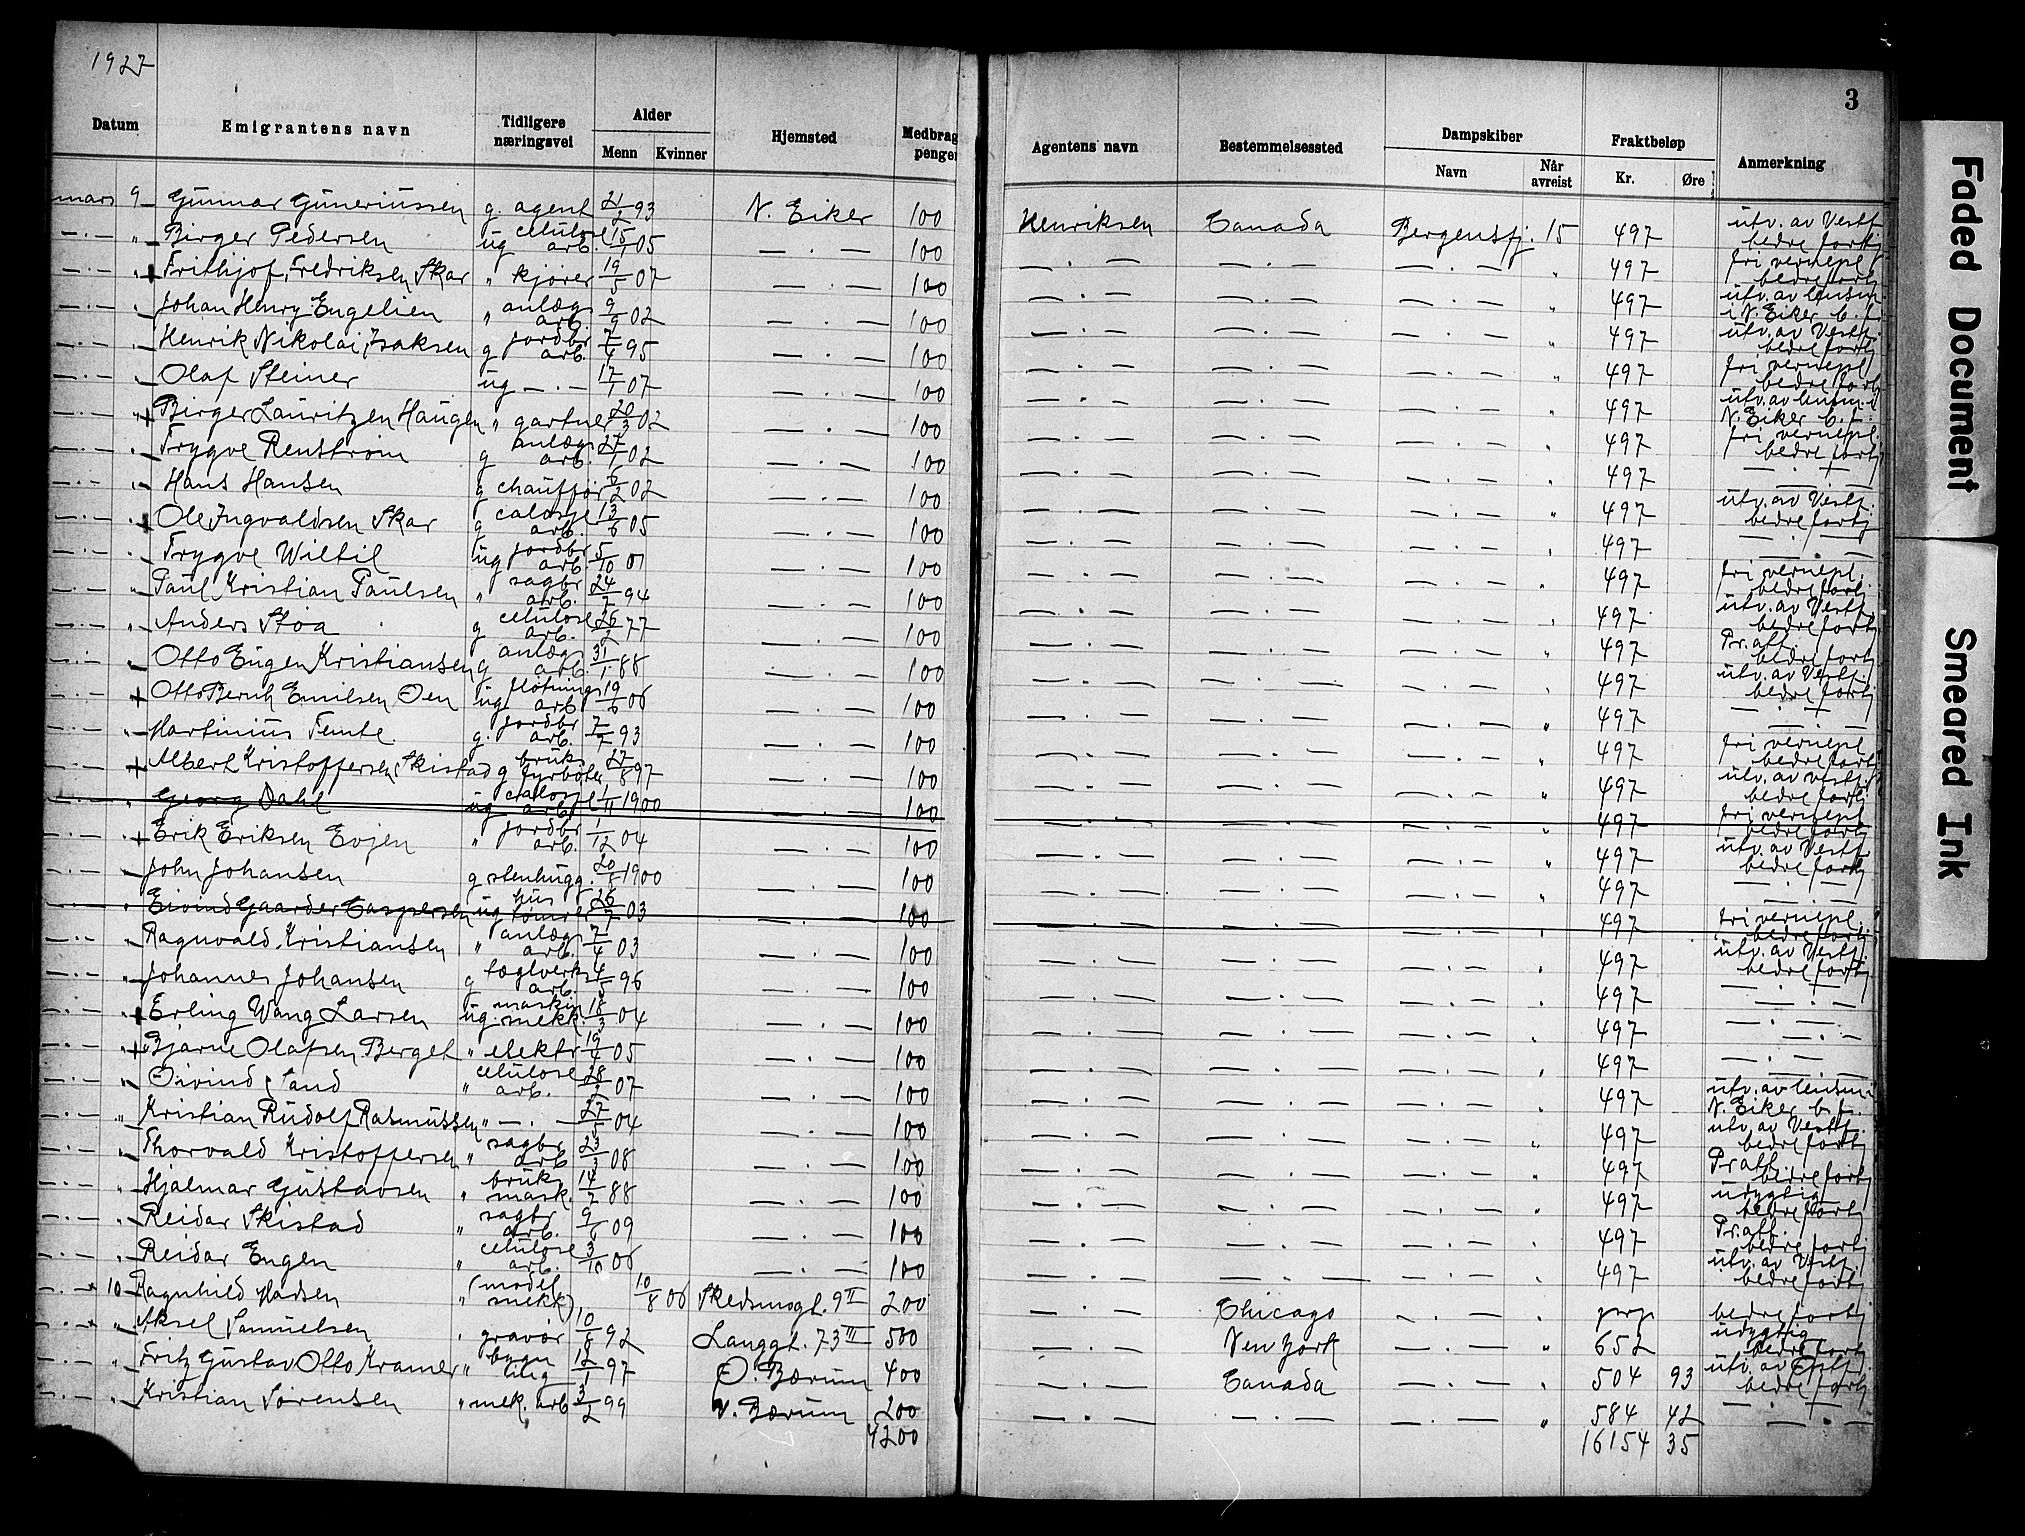 1927
3
Datum Emigrantens navn Tidligere næringsvei Alder Menn Kvinner Hjemsted Medbrag penger Agentens navn Bestemmelsessted Dampskiber Navn Når avreist Fraktbeløp Kr. Øre Anmerkning
mars 9 Gunnar Guneriussen g agent 21/2 93 N. Eiker 100 Henriksen Canada Bergensfj. 15 497 utv. av Vestf. bedre fortj
—·— " Birger Pedersen ug celulose arb. 15/1 05 —·— 100 —·— —·— —·— " 497 fri vernepl. bedre fortj
—·— " Frithjof Fredriksen Skar " kjører 19/5 07 —·— 100 —·— —·— —·— " 497 utv. av lensm. i N. Eiker b. f.
—·— " Johan Henry Engelien " anlæg arb. 9/9 02 —·— 100 —·— —·— —·— " 497 utv. av Vestf. bedre fortj
—·— " Henrik Nikolai Isaksen g jordbr arb. 7/4 95 —·— 100 —·— —·— —·— " 497 fri vernepl bedre fortj
—·— " Olaf Steiner ug —·— 17/1 07 —·— 100 —·— —·— —·— " 497 utv. av lensm. i N. Eiker b. f.
—·— " Birger Lauritzen Haugen " gartner 20/3 02 —·— 100 —·— —·— —·— " 497 fri vernepl. bedre fortj
—·— " Trygve Renstrøm g anlægs arb. 27/1 02 —·— 100 —·— —·— —·— " 497 —·—
—·— " Hans Hansen g chauffør 6/2 02 —·— 100 —·— —·— —·— " 497 utv. av Vestf. bedre fortj
—·— " Ole Ingvaldsen Skar g arb. 13/6 05 —·— 100 —·— —·— —·— " 497 —·—
—·— " Trygve Wiltil ug jordbr arb. 5/10 01 —·— 100 —·— —·— —·— " 497 fri vernepl. bedre fortj
—·— " Paul Kristian Paulsen " sagbr arb. 24/7 94 —·— 100 —·— —·— —·— " 497 utv. av Vestf. bedre fortj
—·— " Anders Stoa g celulose arb. 26/2 77 —·— 100 —·— —·— —·— " 497 Pr. att. bedre fortj
—·— " Otto Eugen Kristiansen g anlæg arb. 31/1 88 —·— 100 —·— —·— —·— " 497 utv. av Vestf. bedre fortj
—·— " Otto Bernh Emilsen Oen ug fløtnings arb 19/6 06 —·— 100 —·— —·— —·— " 497 —·—
—·— " Martinius Temte g. jordbr arb. 7/7 93 —·— 100 —·— —·— —·— " 497 fri vernepl. bedre fortj
—·— " Albert Kristoffersen Skistad g bruks fyrbøter 27/8 97 —·— 100 —·— —·— —·— " 497 utv. av vestf. bedre fortj
—·— " Georg Dahl ug arb. 1/11 1900 100 —·— —·— —·— " 497 fri vernepl bedre fortj
—·— " Erik Eriksen Evjen " jordbr arb. 1/12 04 —·— 100 —·— —·— —·— " 497 utv. av Vestf. bedre fortj
—·— " John Johansen g stenhugg. 20/8 1900 —·— 100 —·— —·— —·— " 497 —·—
—·— " Eivind Gaarder Caspersen ug hus tømrer 26/7 03 —·— 100 —·— —·— —·— " 497 fri vernepl. bedre fortj
—·— " Ragnvald Kristiansen " anlæg arb. 7/4 03 —·— 100 —·— —·— —·— " 497 utv. av Vestf. bedre fortj
—·— " Johannes Johansen g teglverks arb. 4/5 96 —·— 100 —·— —·— —·— " 497 —·—
—·— " Erling Wang Larsen ug. maskin mekk. 18/3 04 —·— 100 —·— —·— —·— " 497 —·—
—·— " Bjarne Olafsen Berget " elektr 19/4 05 —·— 100 —·— —·— —·— " 497 —·—
—·— " Øivind Sand " celulose arb. 28/2 07 —·— 100 —·— —·— —·— " 497 utv. av lensm. i N. Eiker b. f.
—·— " Kristian Rudolf Rasmussen " —·— 27/5 04 —·— 100 —·— —·— —·— " 497 utv. av Vestf. bedre fortj
—·— " Thorvald Kristoffersen " sagbr arb 23/3 08 —·— 100 —·— —·— —·— " 497 Pr. att. bedre fortj
—·— " Hjalmar Gustavsen " bruks mask. 14/7 88 —·— 100 —·— —·— —·— " 497 udygtig bedre fortj
—·— " Reidar Skistad " sagbr arb. 9/6 09 —·— 100 —·— —·— —·— " 497 Pr. att. bedre fortj
—·— " Reidar Engen " celulose arb. 3/10 06 —·— 100 —·— —·— —·— " 497 utv. av Vestf. bedre fortj
10 Ragnhild Madsen " (model mekk) 10/8 06 Skedsmogt. 9 II 200 —·— Chicago —·— " prp bedre fortj
" Aksel Samuelsen " gravør 10/8 92 Langgt. 73 III 500 —·— New York —·— " 652 udygtig bedre fortj
" Fritz Gustav Otto Kramer " bygn 12/1 97 Ø. Bærum 400 —·— Canada —·— " 504 93 utv. av Østf. bedre fortj
" Kristian Sørensen " mek. arb 3/2 99 V. Bærum 200 —·— —·— —·— " 584 42 —·—
4200 16154 35
Faded Document
Smeared Ink